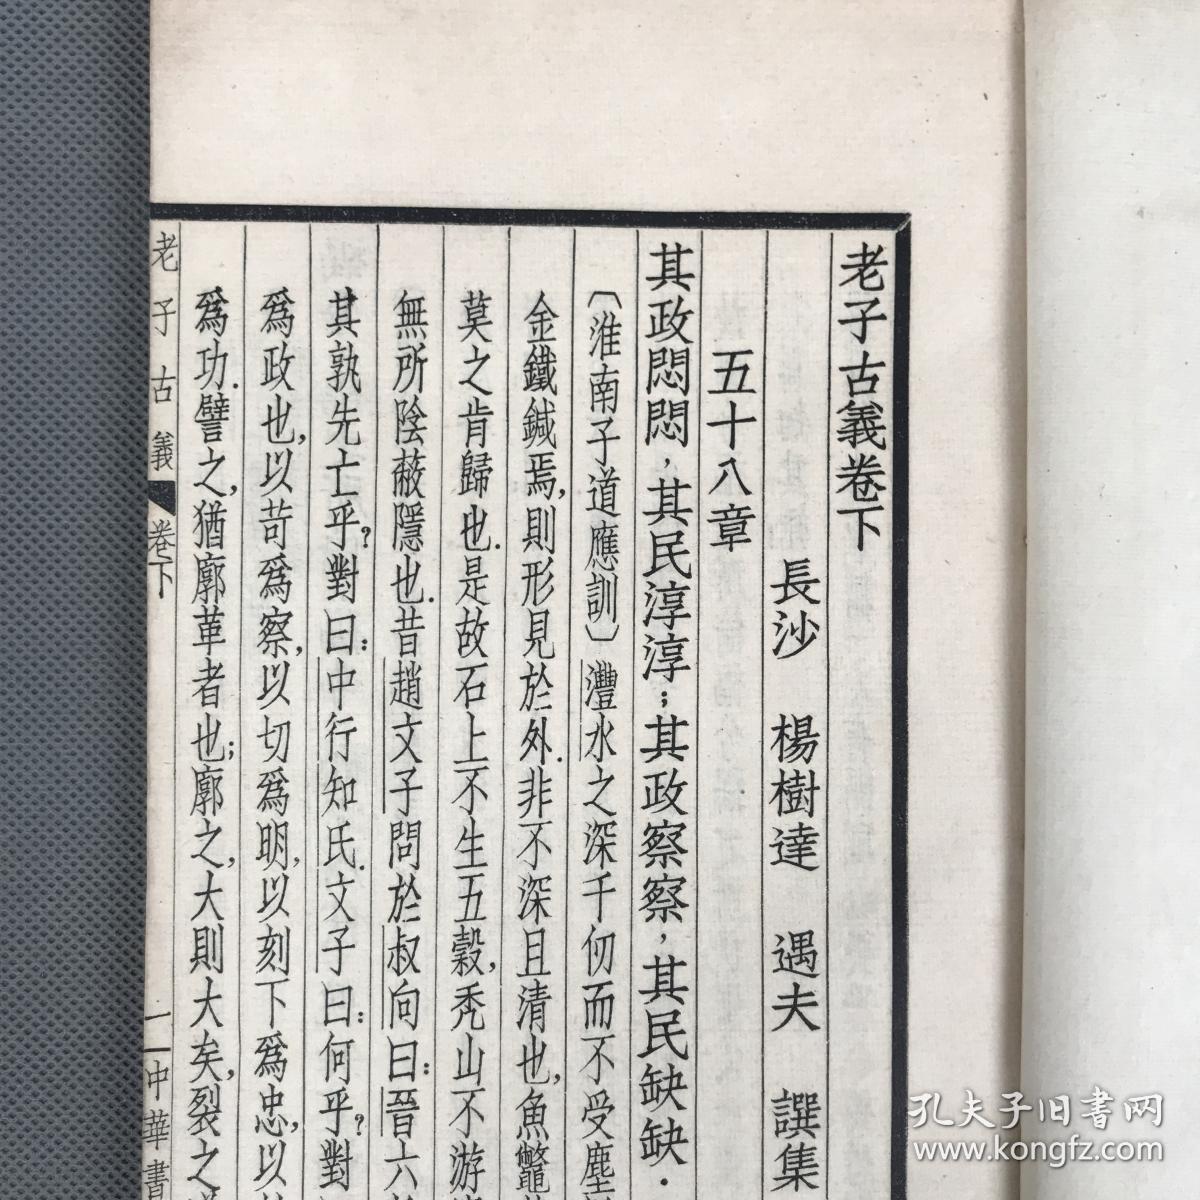 老子古義卷下
長沙 楊樹達 遇夫 譔集
五十八章
其政悶悶，其民淳淳；其政察察，其民缺缺．
〔淮南子道應訓〕灃水之深千仞而不受塵
金鐵鍼焉，則形見於外．非不深且清也，魚鼈
莫之肯歸也．是故石上不生五穀，禿山不游
無所陰蔽隱也．昔趙文子問於叔向曰：晉六
其孰先亡乎？對曰：中行知氏．文子曰：何乎？對
爲政也，以苛爲察，以切爲明，以刻下爲忠，以
爲功．譬之，猶廓革者也；廓之，大則大矣，裂之
老子古義 卷下 一 中華書
孔夫子旧书网
www.kongfz.com